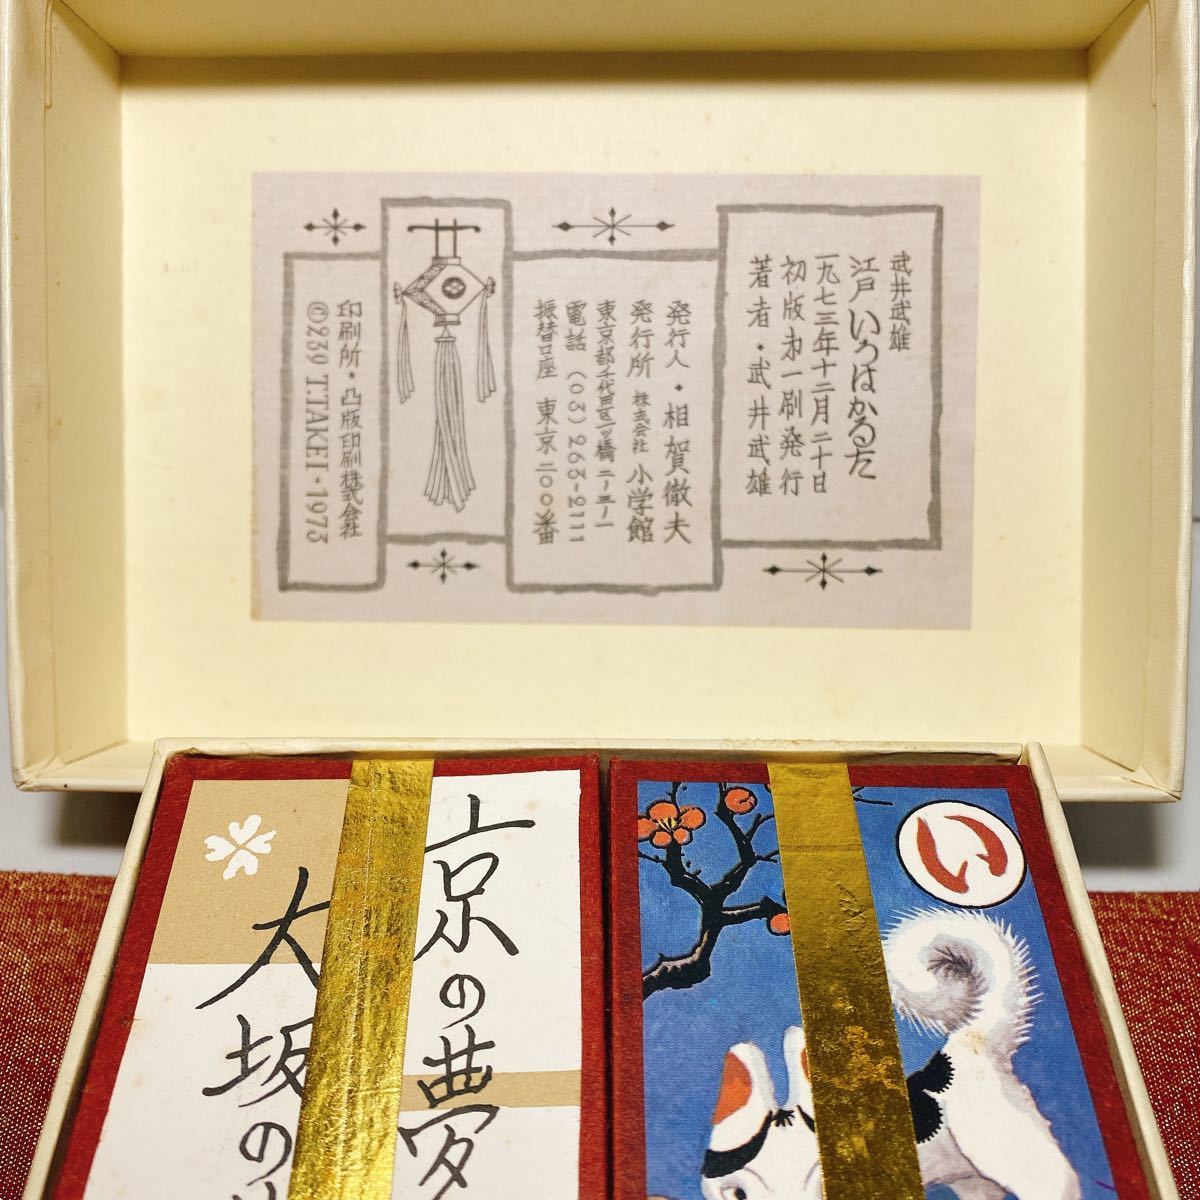 武井武雄
江戸いろはかるた
一九七三年十二月二十日
初版オ一刷発行
著者・武井武雄
発行人・相賀徹夫
発行所 株式会社 小学館
東京都千代田区一ツ橋二ノ三ノ一
電話 (03) 263-2111
振替口座 東京二〇〇番
印刷所・凸版印刷株式会社
©239 T.TAKEI・1973
京の夢
大坂の
い